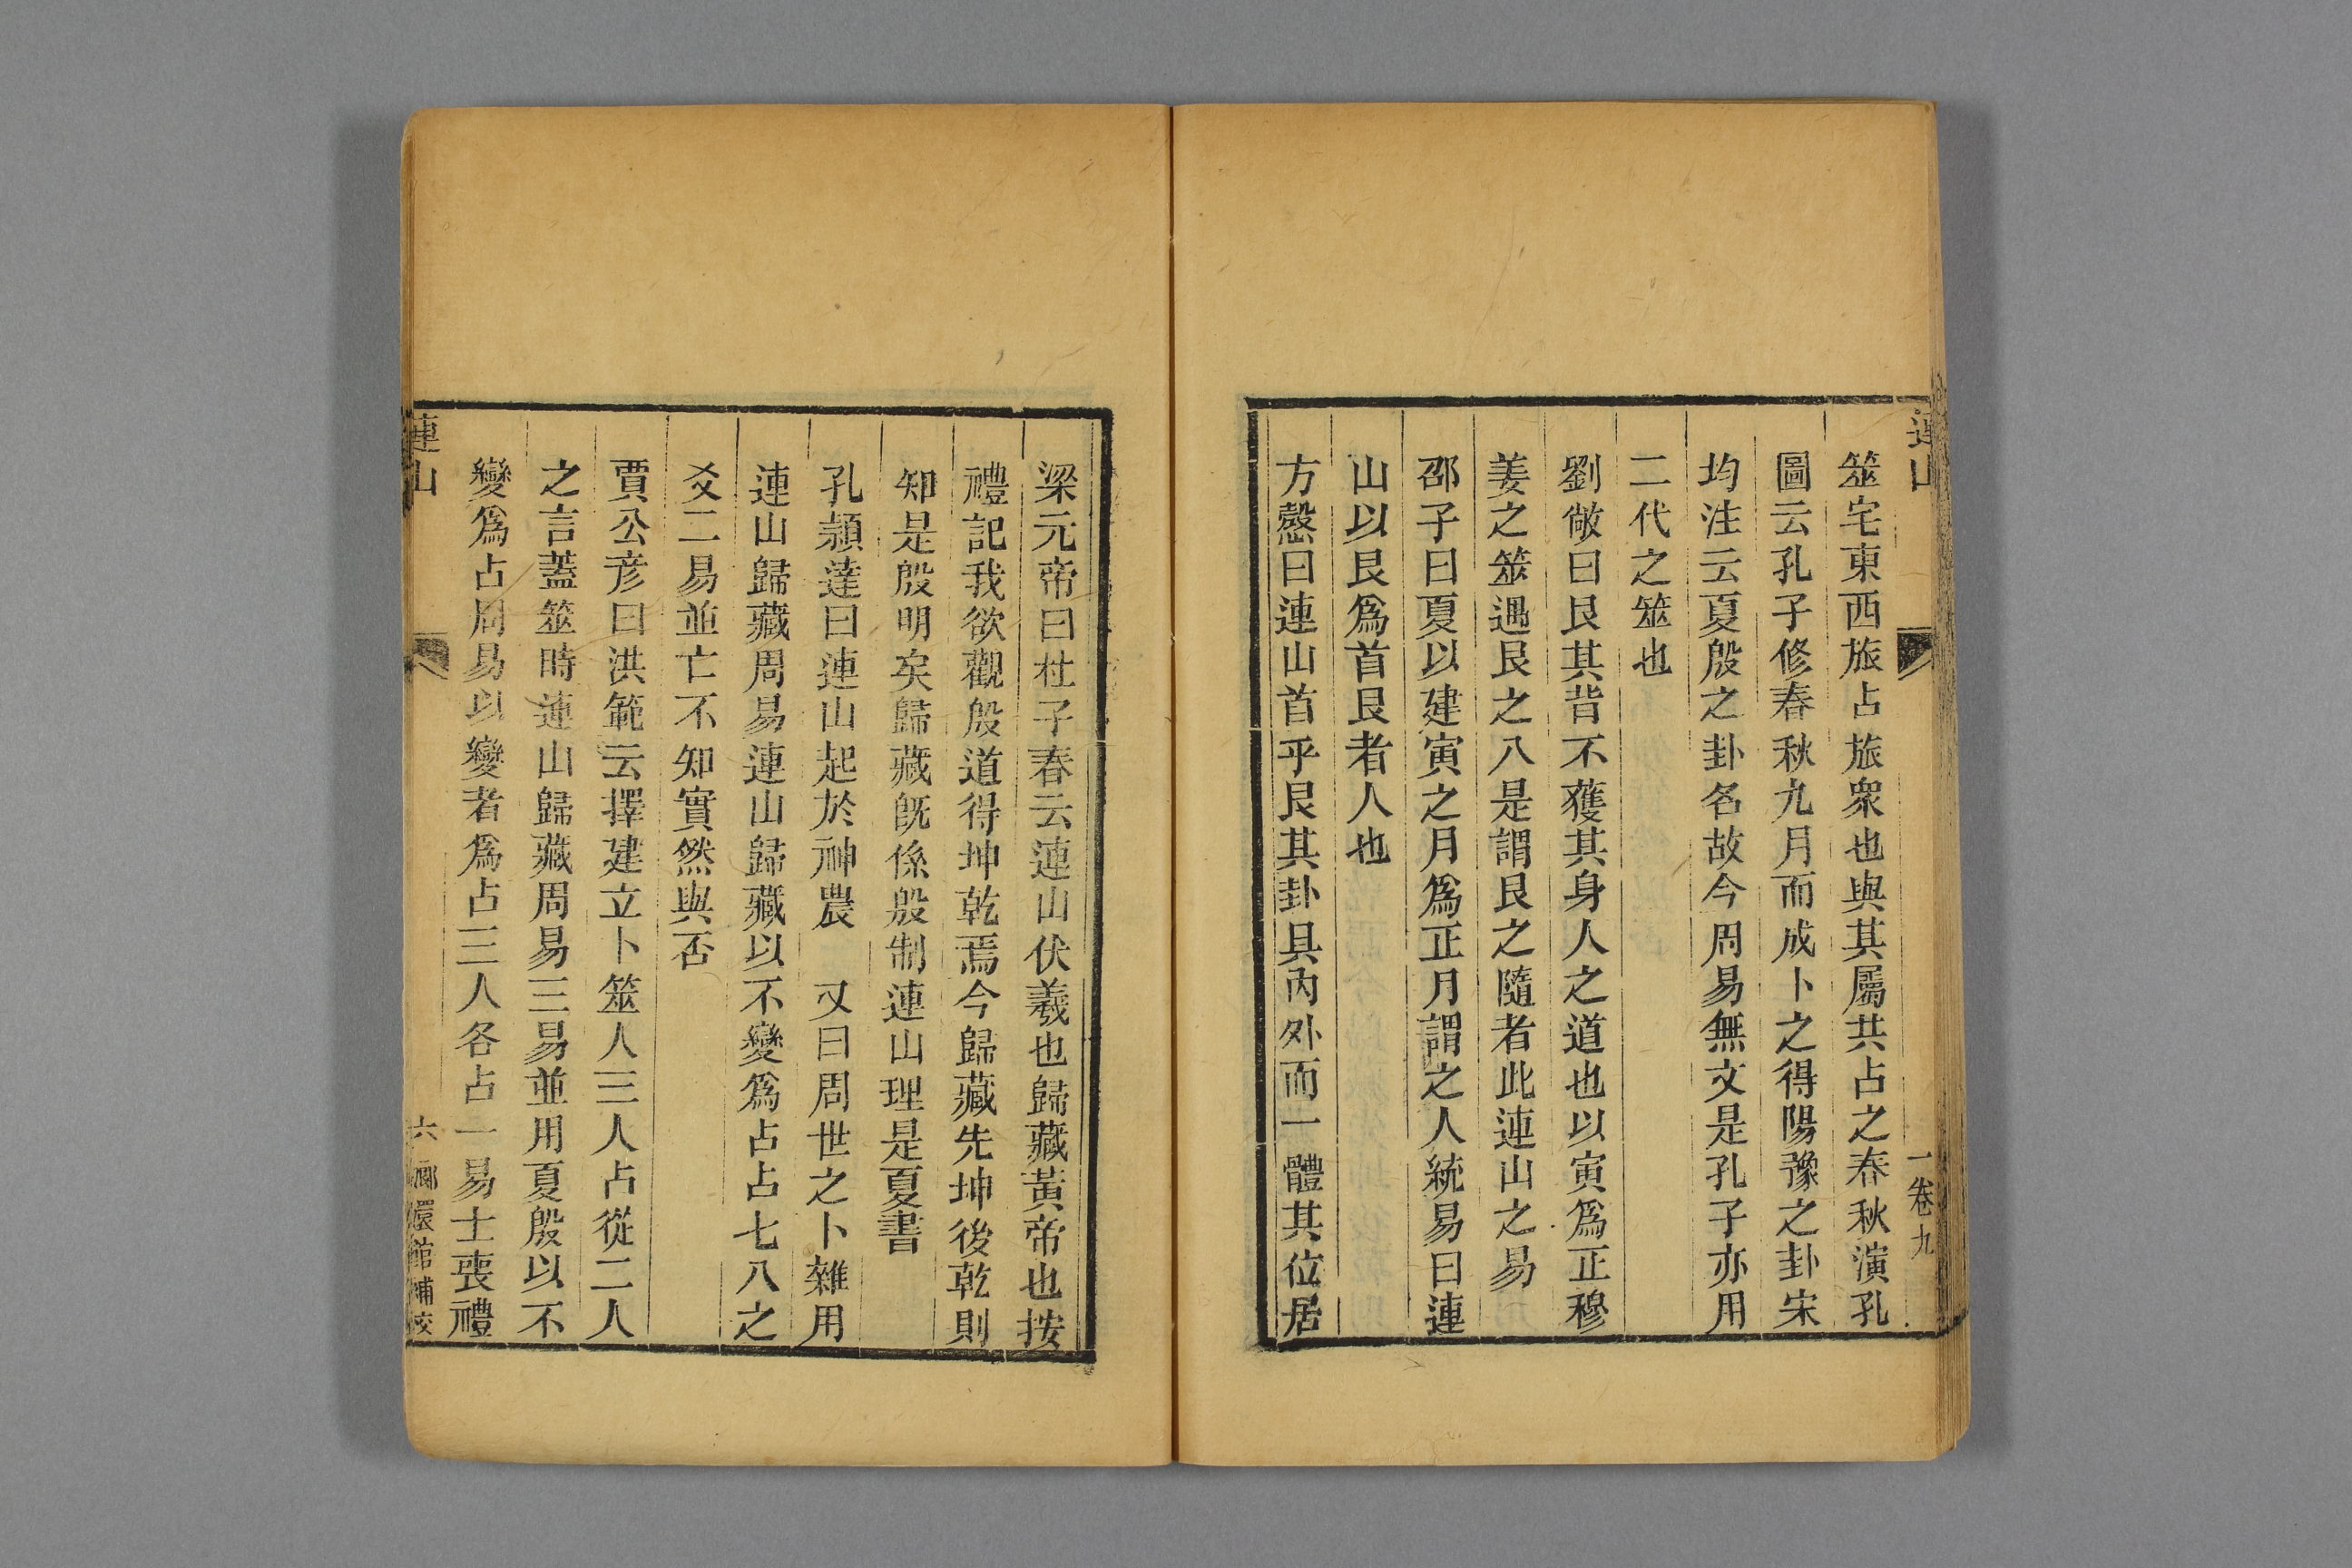 連山
一卷九
筮宅東西旅占旅衆也與其屬共占之春秋演孔
圖云孔子修春秋九月而成卜之得陽豫之卦宋
均注云夏殷之卦名故今周易無文是孔子亦用
二代之筮也
劉敞曰艮其背不獲其身人之道也以寅爲正穆
姜之筮遇艮之八是謂艮之隨者此連山之易
邵子曰夏以建寅之月爲正月謂之人統易曰連
山以艮爲首艮者人也
方慤曰連山首乎艮其卦具內外而一體其位居
梁元帝曰杜子春云連山伏羲也歸藏黃帝也按
禮記我欲觀殷道得坤乾焉今歸藏先坤後乾則
知是殷明矣歸藏旣係殷制連山理是夏書
孔頴達曰連山起於神農　又曰周世之卜雜用
連山歸藏周易連山歸藏以不變爲占占七八之
爻二易並亡不知實然與否
賈公彥曰洪範云擇建立卜筮人三人占從二人
之言蓋筮時連山歸藏周易三易並用夏殷以不
變爲占周易以變者爲占三人各占一易士喪禮
連山
六
嫏嬛館補校